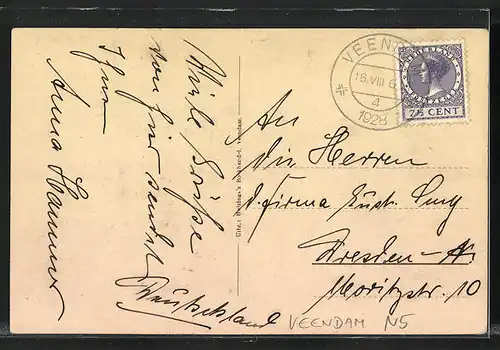 Viele Grüße
von hier sendet
Ihnen
Anna Hammer
Uitg.: Boekhandel, Veendam.
VEEN
16 VIII 6
4
1928
NEDERLAND
7½ CENT
An
die Herren
d. Firma Gust.
Dresden-A.
Moritzstr. 10
Deutschland
VEENDAM N5